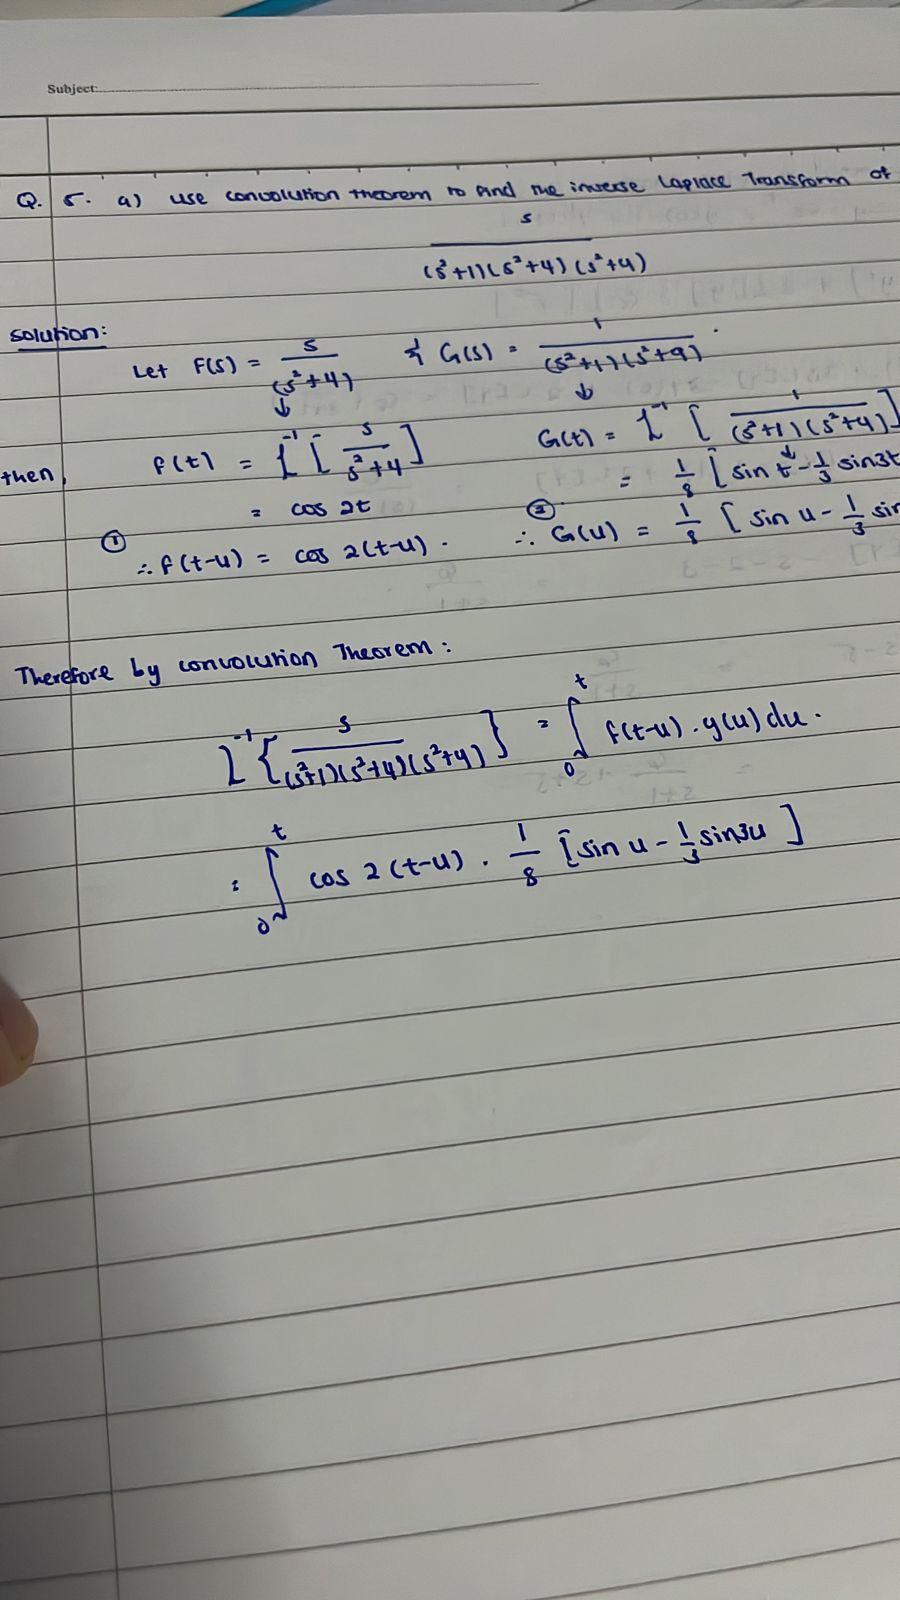 Subject:
Q. 5. a) Use convolution theorem to find the inverse Laplace Transform of
s
(s²+1)(s²+4)(s²+4)
Solution:
Let F(s) = s/(s²+4) & G(s) = 1/(s²+1)(s²+9).
then, f(t) = L⁻¹[s/s²+4] G(t) = L⁻¹[1/(s²+1)(s²+4)]
= cos 2t = 1/8 [sin t - 1/3 sin3t
① ∴ f(t-u) = cos 2(t-u). ② ∴ G(u) = 1/8 [sin u - 1/3 sin
Therefore by convolution Theorem:
L⁻¹{s/(s²+1)(s²+4)(s²+4)} = ∫₀ᵗ f(t-u).g(u)du.
= ∫₀ᵗ cos 2(t-u). 1/8 [sin u - 1/3 sin3u]